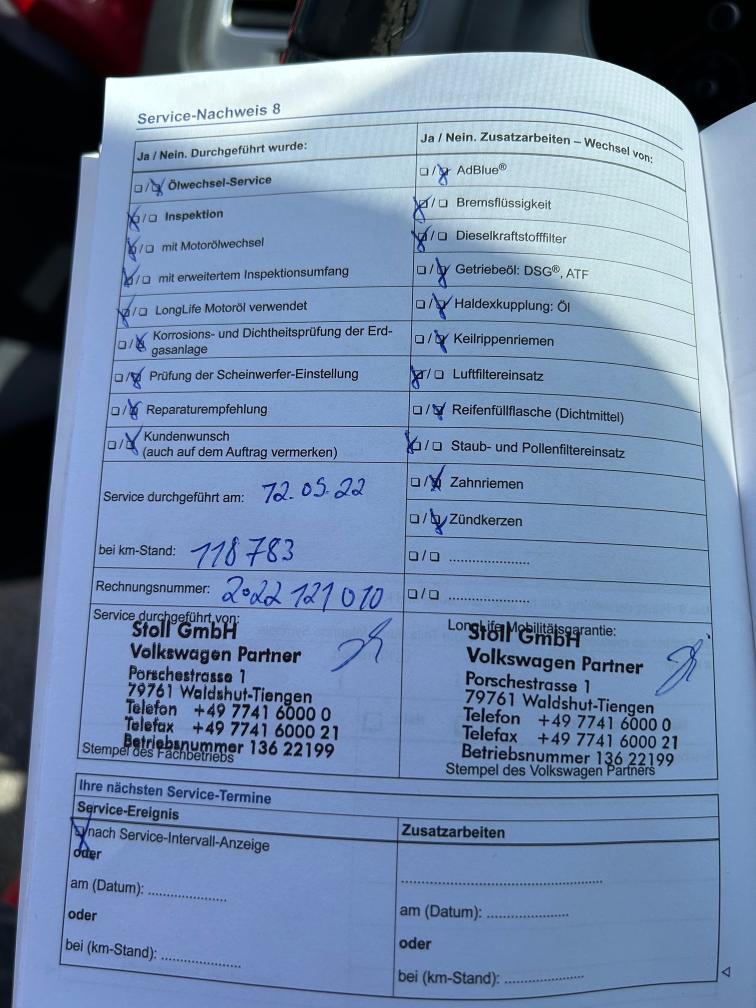 Service-Nachweis 8
Ja / Nein. Durchgeführt wurde:
☐/☒ Ölwechsel-Service
☒/☐ Inspektion
☒/☐ mit Motorölwechsel
☒/☐ mit erweitertem Inspektionsumfang
☒/☐ LongLife Motoröl verwendet
☐/☒ Korrosions- und Dichtheitsprüfung der Erd-
gasanlage
☐/☒ Prüfung der Scheinwerfer-Einstellung
☐/☒ Reparaturempfehlung
☐/☒ Kundenwunsch
(auch auf dem Auftrag vermerken)
Service durchgeführt am: 12.05.22
bei km-Stand: 118 783
Rechnungsnummer: 2022 121 010
Ja / Nein. Zusatzarbeiten – Wechsel von:
☐/☒ AdBlue®
☒/☐ Bremsflüssigkeit
☒/☐ Dieselkraftstofffilter
☐/☒ Getriebeöl: DSG®, ATF
☐/☒ Haldexkupplung: Öl
☐/☒ Keilrippenriemen
☒/☐ Luftfiltereinsatz
☐/☒ Reifenfüllflasche (Dichtmittel)
☒/☐ Staub- und Pollenfiltereinsatz
☐/☒ Zahnriemen
☐/☒ Zündkerzen
☐/☐ ....................
☐/☐ ....................
Service durchgeführt von:
Stoll GmbH
Volkswagen Partner
Porschestrasse 1
79761 Waldshut-Tiengen
Telefon +49 7741 6000 0
Telefax +49 7741 6000 21
Betriebsnummer 136 22199
Stempel des Fachbetriebs
LongLife Mobilitätsgarantie:
Stoll GmbH
Volkswagen Partner
Porschestrasse 1
79761 Waldshut-Tiengen
Telefon +49 7741 6000 0
Telefax +49 7741 6000 21
Betriebsnummer 136 22199
Stempel des Volkswagen Partners
Ihre nächsten Service-Termine
Service-Ereignis
☒ nach Service-Intervall-Anzeige
oder
am (Datum): ....................
oder
bei (km-Stand): ....................
Zusatzarbeiten
..................................................
am (Datum): ....................
oder
bei (km-Stand): ....................